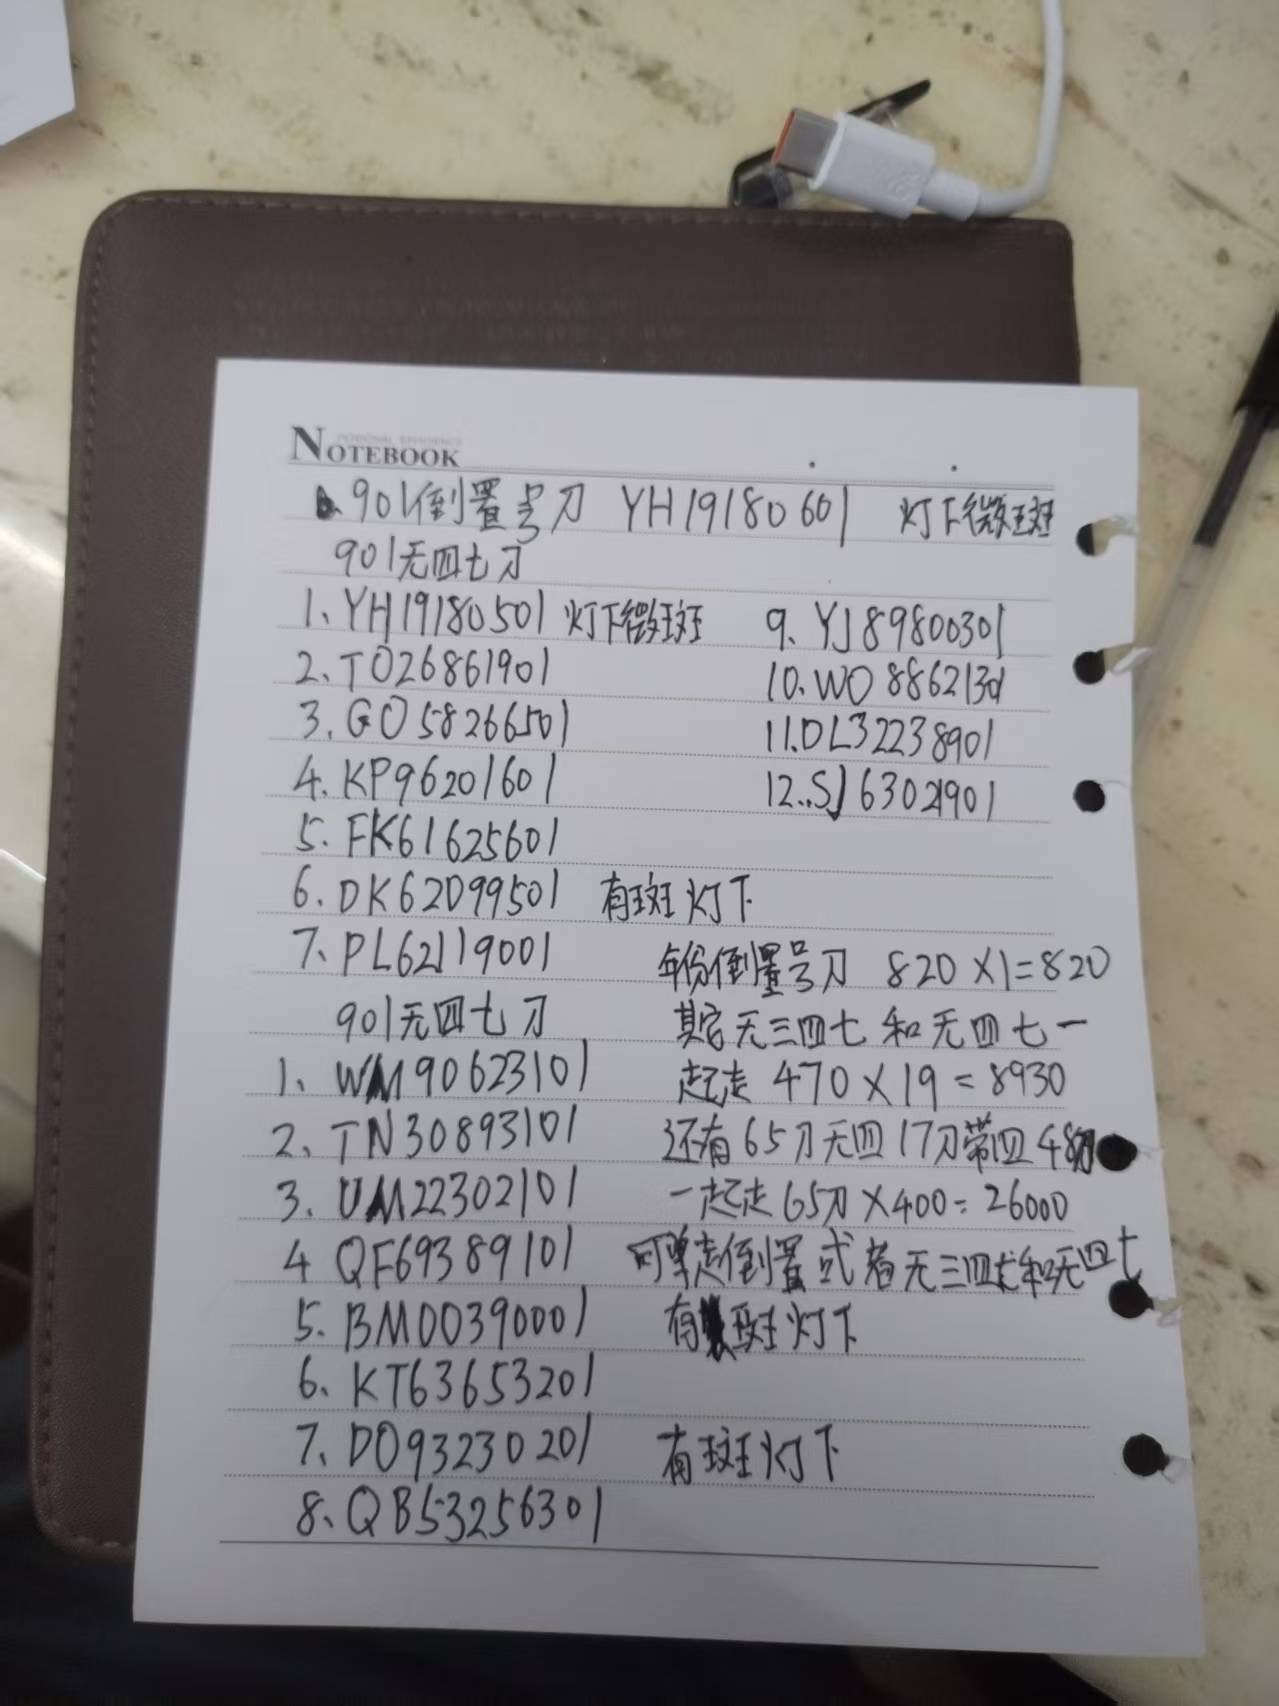 PERSONAL EFFICIENCY
NOTEBOOK
901倒置号刀 YH19180601 灯下微斑
901无四七刀
1、YH19180501 灯下微斑
2、TO26861901
3、GO58266501
4、KP96201601
5、FK61625601
6、DK62099501 有斑灯下
7、PL62119001
901无四七刀
1、WM90623101
2、TN30893101
3、UM22302101
4 QF69389101
5、BM00390001 有斑灯下
6、KT63653201
7、DO93230201 有斑灯下
8、QB53256301
9、YJ89800301
10、WO88621301
11.DL32238901
12..SJ63021901
年份倒置号刀 820×1=820
其它无三四七和无四七一
起走 470×19=8930
还有65刀无四17刀带四48刀
一起走65刀×400=26000
可单走倒置或者无三四七和无四七